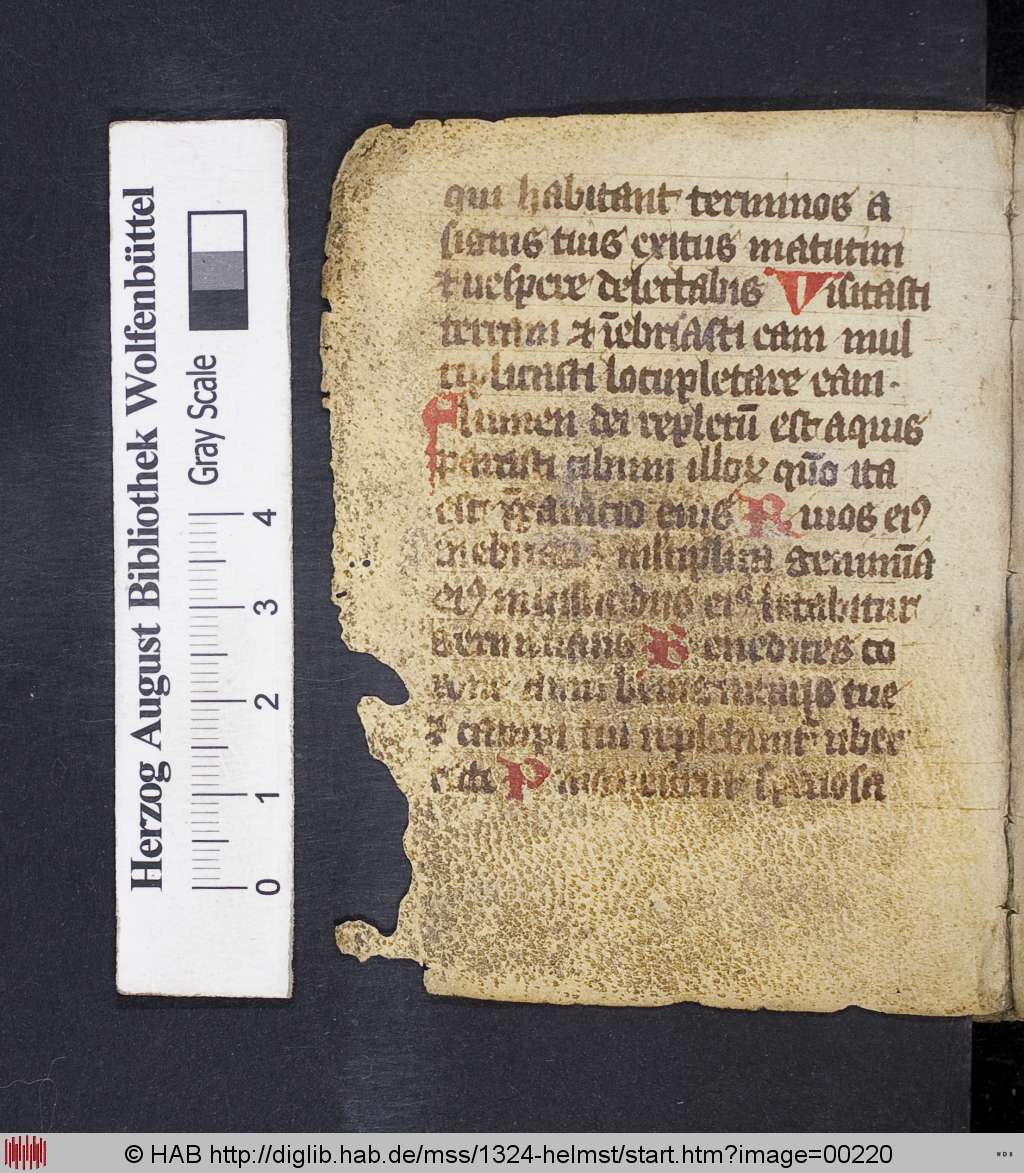 qui habitant terminos a
signis tuis exitus matutini
⁊ uespere delectabis Visitasti
terram ⁊ īebriasti eam mul
tiplicasti locupletare eam.
Flumen dei repletū est aquis
parasti cibum illoꝝ qūo ita
est eius Riuos eiꝰ
genimīa
eiꝰ eiꝰ letabitur
Benedices co
tue
⁊ campi tui replebunt uber
P speciosa
Herzog August Bibliothek Wolfenbüttel
Gray Scale
0 1 2 3 4
© HAB http://diglib.hab.de/mss/1324-helmst/start.htm?image=00220